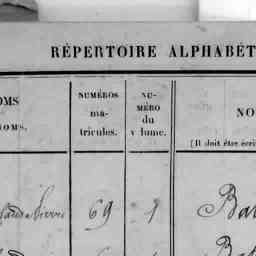 RÉPERTOIRE ALPHABÉT
OMS
OMS.
NUMÉROS
ma-
tricules.
NU-
MÉRO
du
v lume.
NO
[Il doit être écri
Pierre 69 1 Ba